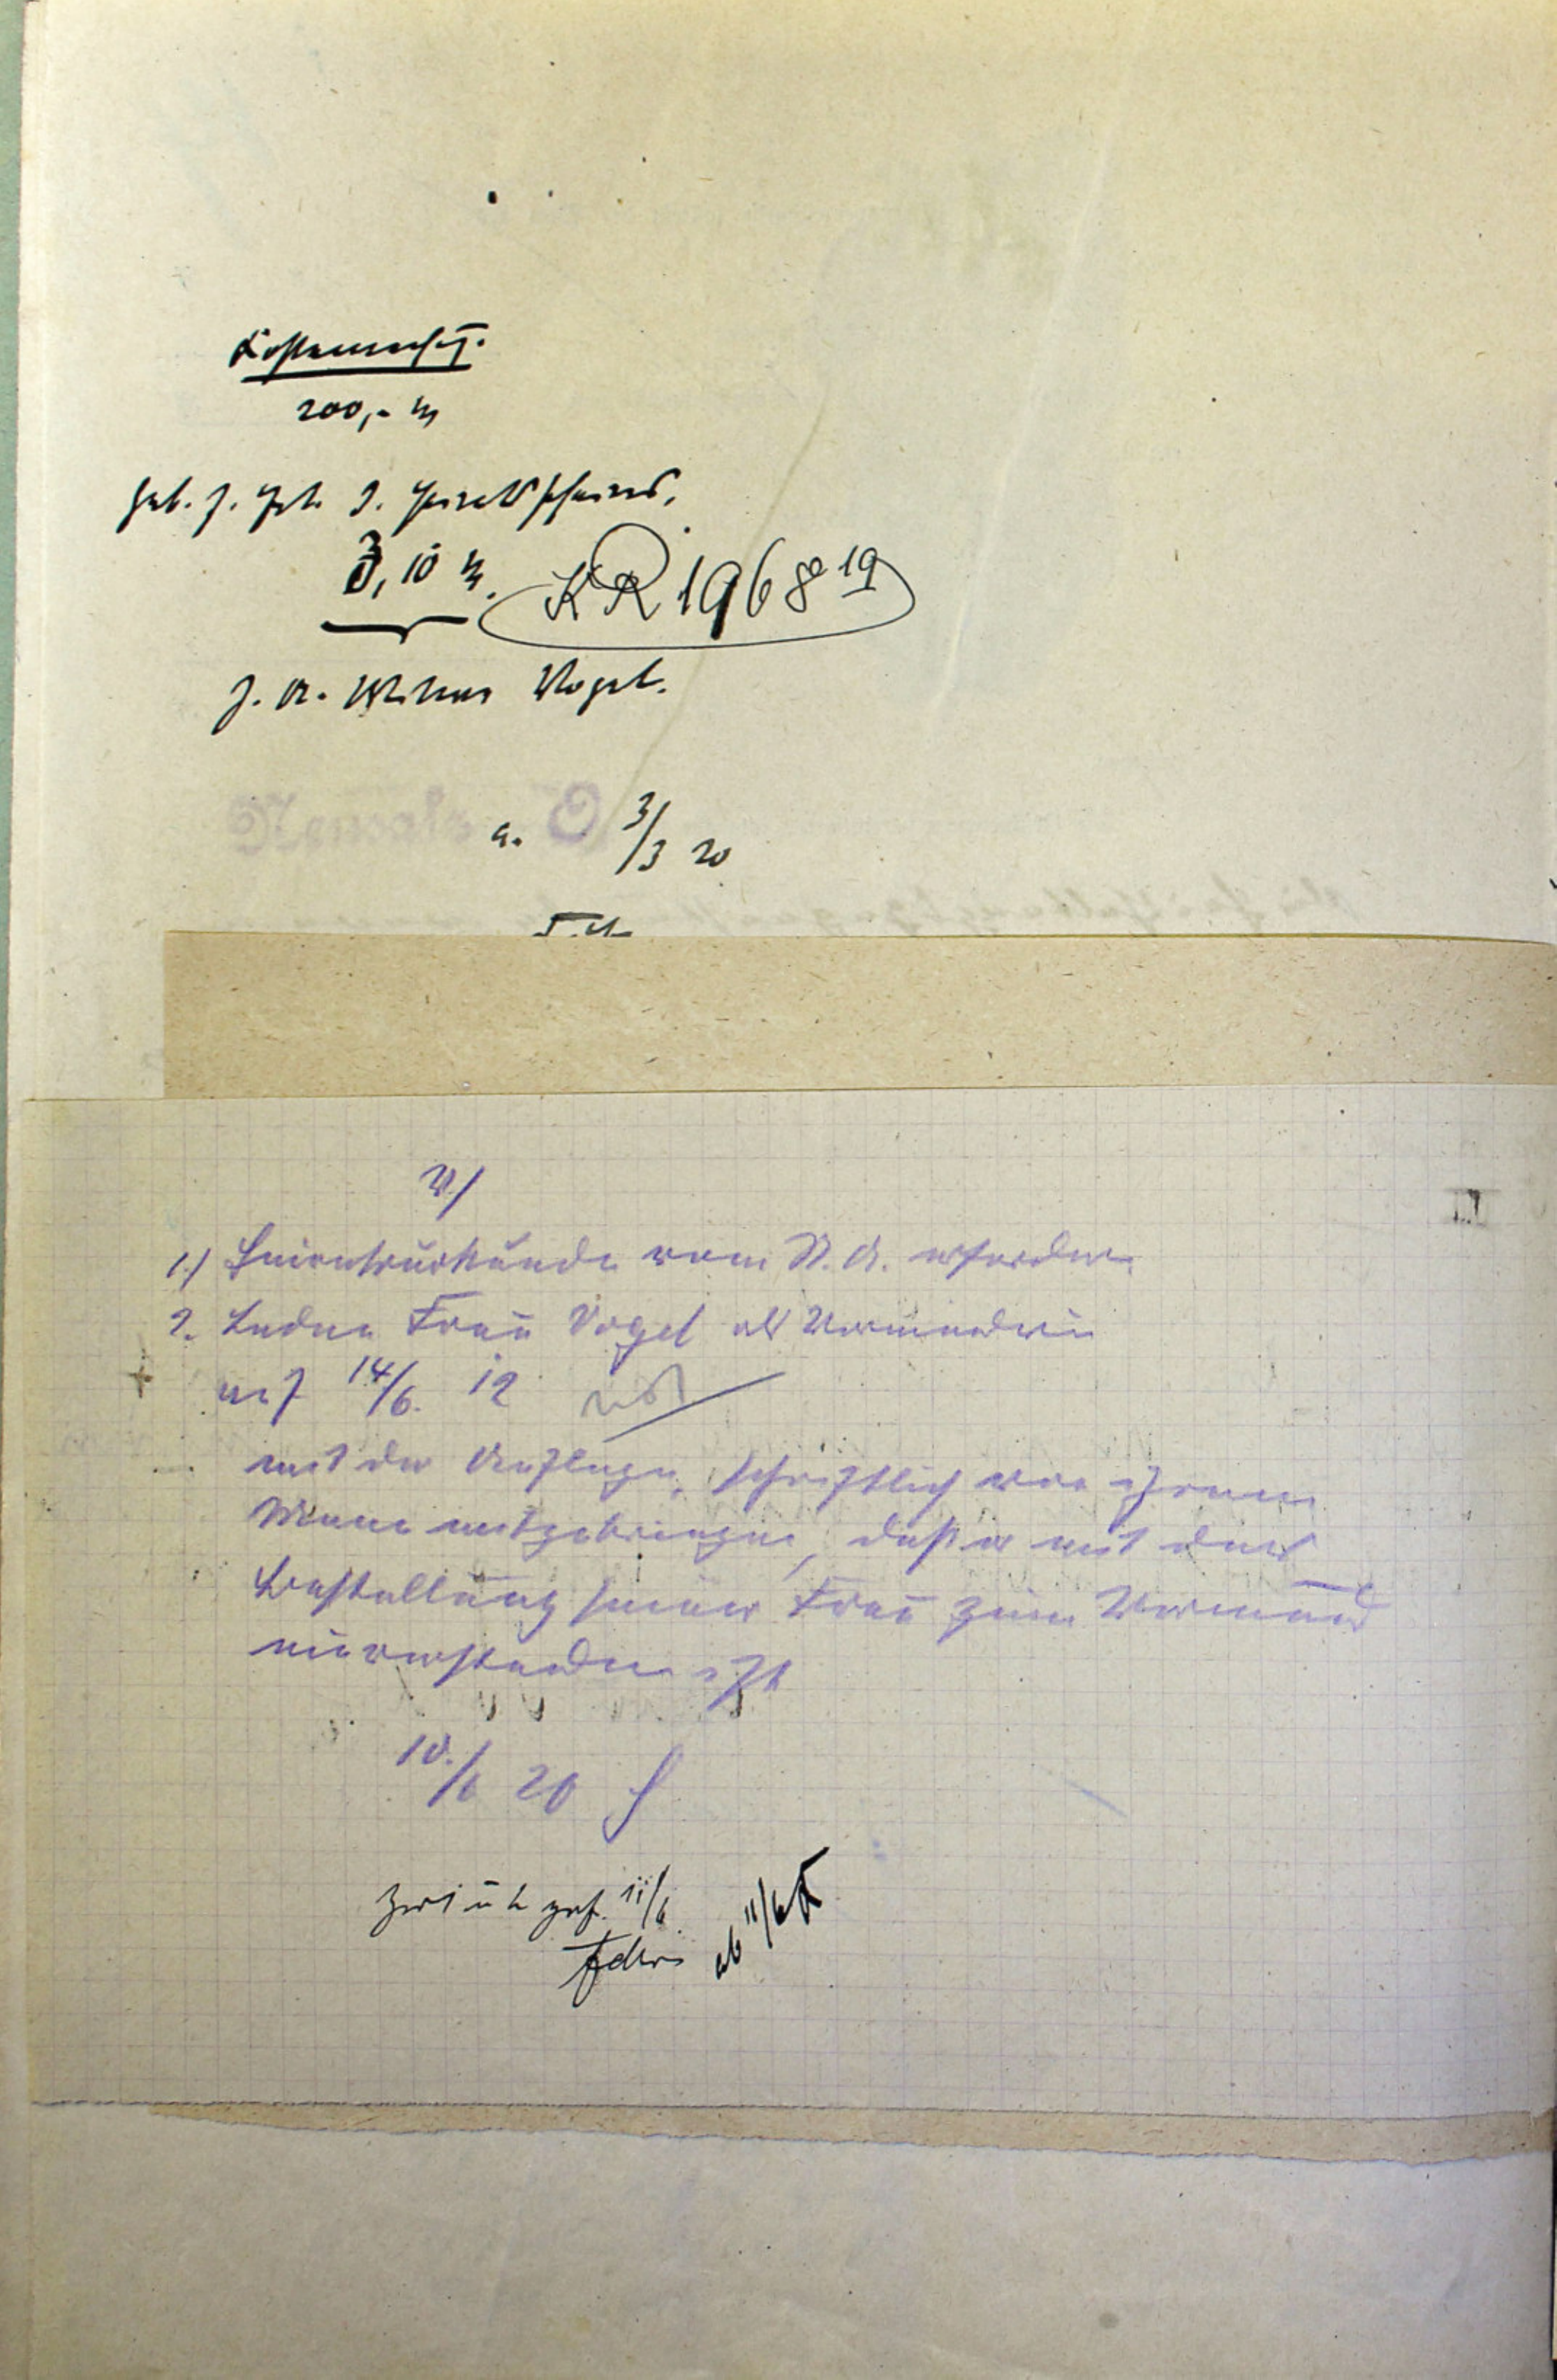 Kostenrechng.
200,- M
Geb. f.
3,10 M. KR 1968 19
Vogel.
a. 3/3 20
V./
1.) Heiratsurkunde vom St. A. erfordern
2. Laden Frau Vogel als Vormünderin
auf 14/6. 12
mit der Auflage, schriftlich von ihrem
Manne mitzubringen, daß er mit der
Bestallung seiner Frau zum Vormund
einverstanden ist
10./6 20
zur gef. 11/6
ab 11/6